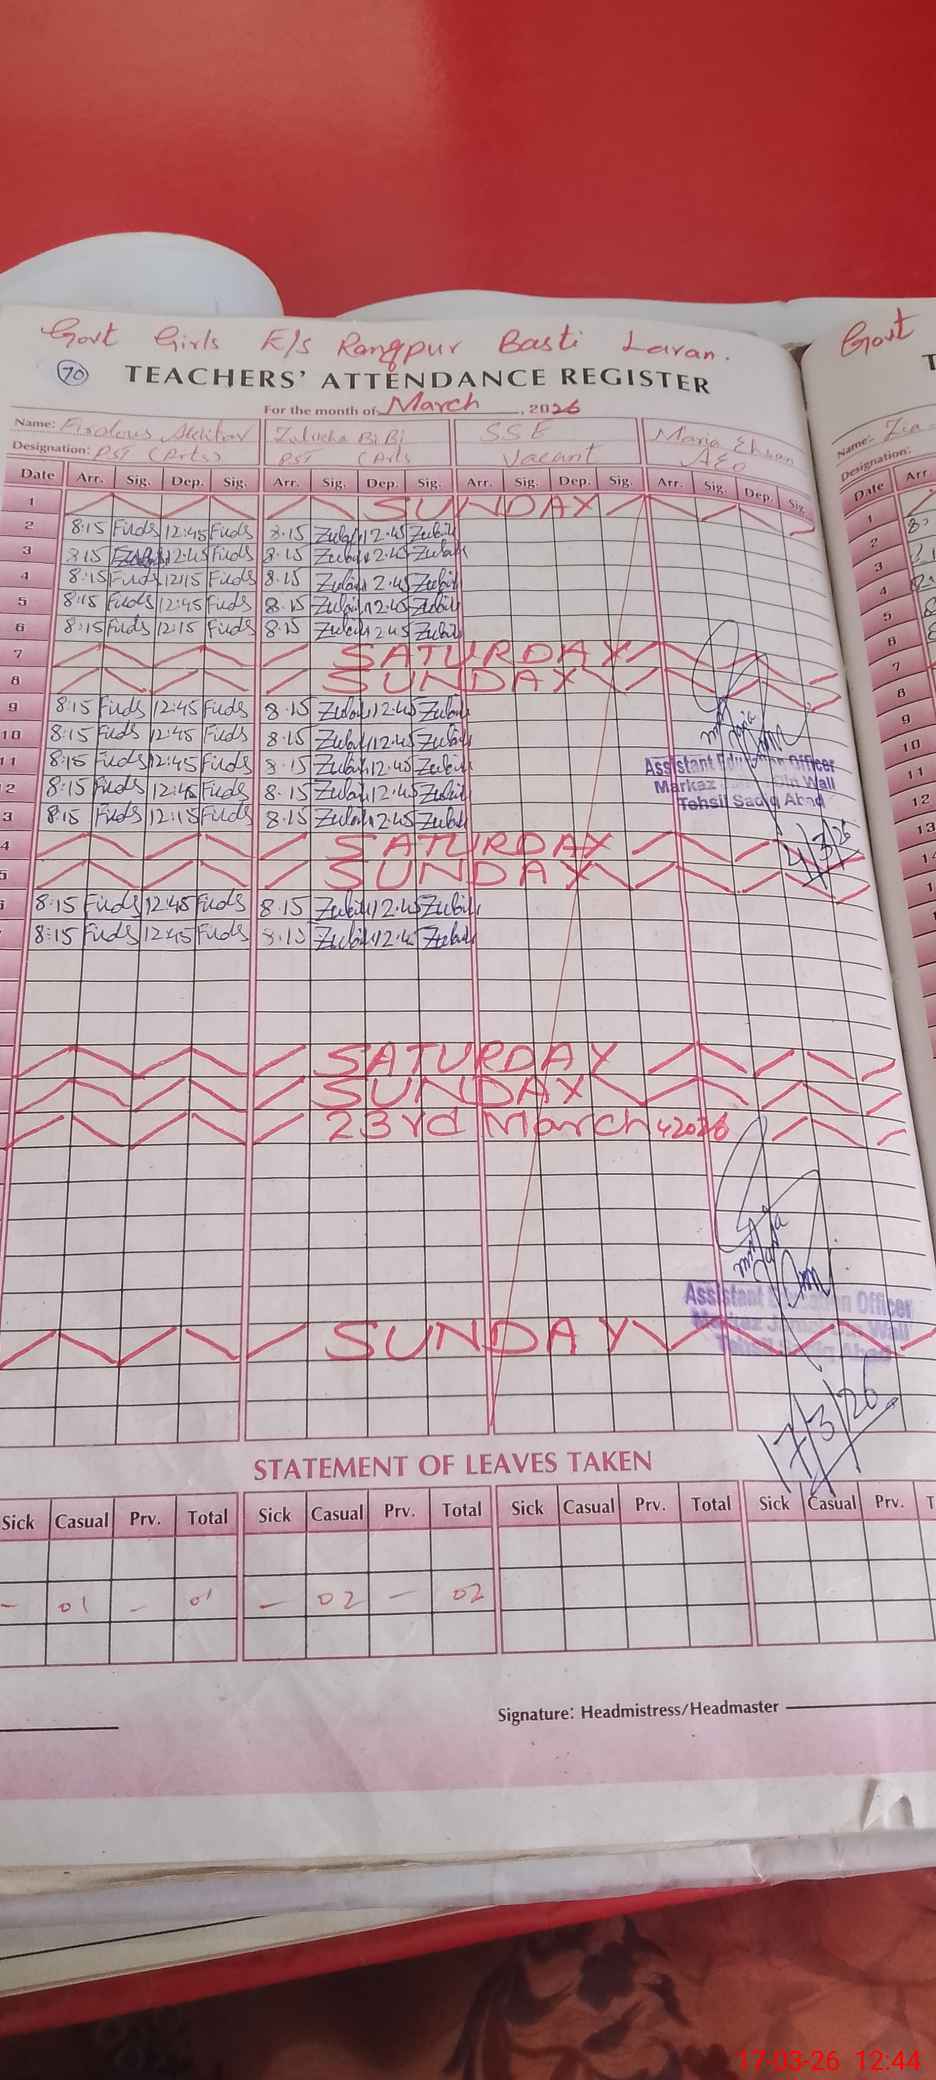 Govt Girls E/S Rangpur Basti Laran.
Govt
70 TEACHERS' ATTENDANCE REGISTER
For the month of March, 2026
Name: Firdous Akhtar Zulekha BiBi SSE Maria Ehsan
Designation: PST (Arts) PST (Arts Vacant AEO
Name:- Zia
Designation:
Date Arr. Sig. Dep. Sig. Arr. Sig. Dep. Sig. Arr. Sig. Dep. Sig. Arr. Sig. Dep. Sig.
Date Arr
1 SUNDAY
2 8:15 Fuds 12:45 Fuds 8.15 12.45
3 8:15 12:45 Fuds 8.15 12.45
4 8:15 Fuds 12:15 Fuds 8.15 12.45
5 8:15 Fuds 12:45 Fuds 8.15 12.45
6 8:15 Fuds 12:15 Fuds 8.15 12.45
7 SATURDAY
8 SUNDAY
9 8:15 Fuds 12:45 Fuds 8.15 12.45
10 8:15 Fuds 12:45 Fuds 8.15 12.45
11 8:15 Fuds 12:45 Fuds 8.15 12.45
2 8:15 Fuds 12:45 Fuds 8.15 12.45
3 8:15 Fuds 12:15 Fuds 8.15 12.45
4 SATURDAY
5 SUNDAY
8:15 Fuds 12:45 Fuds 8.15 12.45
8:15 Fuds 12:45 Fuds 8.15
Assistant Education Officer
Markaz Din Wali
Tehsil Sadiq Abad
4/3/26
SATURDAY
SUNDAY
23rd March, 2026
Assistant Education Officer
Markaz Din Wali
Tehsil Sadiq Abad
SUNDAY
17/3/26
STATEMENT OF LEAVES TAKEN
Sick Casual Prv. Total Sick Casual Prv. Total Sick Casual Prv. Total Sick Casual Prv. T
- 01 - 01 - 02 - 02
Signature: Headmistress/Headmaster
17-03-26 12:44